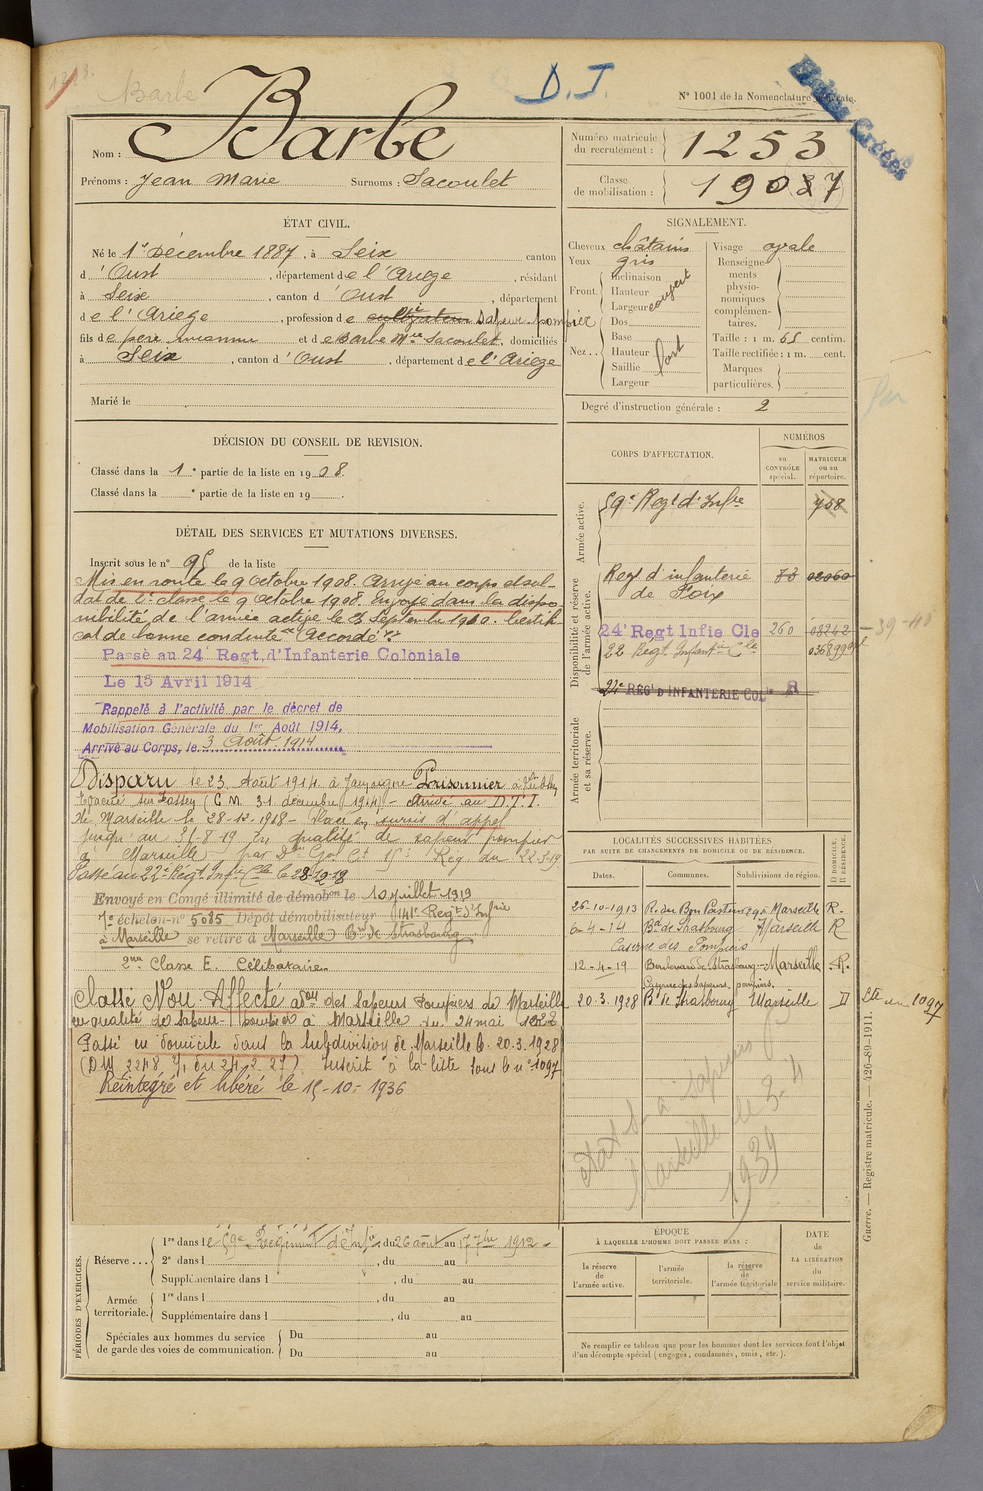 1253.
Barbe
D.I.
N° 1001 de la Nomenclature générale.
Fiches Créées
Nom : Barbe
Prénoms : Jean Marie Surnoms : Sacoulet
Numéro matricule du recrutement : 1253
Classe de mobilisation : 1907
ÉTAT CIVIL.
Né le 1er Décembre 1887, à Seix canton
d'Oust, département de l'Ariege, résidant
à Seix, canton d'Oust, département
de l'Ariege, profession de cultivateur Sapeur-pompier
fils de pere inconnu et de Barbe Mie Sacoulet, domiciliés
à Seix, canton d'Oust, département de l'Ariege
Marié le
SIGNALEMENT.
Cheveux châtains
Yeux gris
Front
Inclinaison
Hauteur
Largeur
Nez
Dos
Base
Hauteur fort
Saillie
Largeur
Visage ovale
Renseignements physionomiques complémentaires.
Taille : 1 m. 65 centim.
Taille rectifiée : 1 m. cent.
Marques particulières.
Degré d'instruction générale : 2
DÉCISION DU CONSEIL DE REVISION.
Classé dans la 1e partie de la liste en 1908.
Classé dans la e partie de la liste en 19
DÉTAIL DES SERVICES ET MUTATIONS DIVERSES.
Inscrit sous le n° 95 de la liste
Mis en route le 9 octobre 1908. Arrivé au corps et sol-
dat de 2e classe le 9 octobre 1908. Envoyé dans la dispo
nibilité de l'armée active le 25 Septembre 1910. Certifi
cat de bonne conduite "Accordé"
Passé au 24e Regt. d'Infanterie Coloniale
Le 15 Avril 1914
Rappelé à l'activité par le décret de
Mobilisation Générale du 1er Août 1914,
Arrivé au Corps, le 3 Août 1914
Disparu le 23 Août 1914 à Jamoigne Prisonnier à
(C.M. 31 décembre 1914) - Arrivé au D.T.I.
de Marseille le 28-12-1918 - Placé en sursis d'appel
jusqu'au 31-8-19 en qualité de sapeur pompier
à Marseille par Don Gal Ct 15e Rég. du 22-3-19.
Passé au 22e Régt Infie Cle le 28-12-18
Envoyé en Congé illimité de démobon le 10 juillet 1919
7e échelon-n° 5085 Dépôt démobilisateur 141e Regt d'Infrie
à Marseille se retire à Marseille Bard de Strasbourg
Classe E. Célibataire
Classé Non-Affecté des Sapeurs Pompiers de Marseille
en qualité de Sapeur-pompier à Marseille du 24 mai 1922
Passé en domicile dans la subdivision de Marseille le 20.3.1928
(DM 2248 7/1 du 24.2.27). Inscrit à la liste sous le n° 1097
Réintégré et libéré le 15-10-1936
CORPS D'AFFECTATION.
NUMÉROS
au CONTRÔLE spécial.
MATRICULE ou au répertoire.
Armée active.
59e Regt d'Infre 708
Disponibilité et réserve de l'armée active.
Regt d'infanterie de Foix 73 02060
24e Regt Infie Cle 260 08242 - 39-40
22 Régt Infantie Cle
22e REGt D'INFANTERIE COLle
Armée territoriale et sa réserve.
LOCALITÉS SUCCESSIVES HABITÉES
PAR SUITE DE CHANGEMENTS DE DOMICILE OU DE RÉSIDENCE.
Dates. Communes. Subdivisions de région. D DOMICILE. R RÉSIDENCE.
26-10-1913 R. du Bon Pasteur Marseille R.
6-4-14 Bd de Strasbourg Marseille R
Caserne des Pompiers
12-4-19 Boulevard de Strasbourg - Marseille R.
Caserne des Sapeurs-pompiers
20.3.1928 Bd de Strasbourg Marseille D Liste n° 1097
Marseille le 3-4
1939
PÉRIODES D'EXERCICES.
Réserve
1re dans le 59e Régiment d'Infie, du 26 août au 17 7bre 1912
2e dans l , du au
Supplémentaire dans l , du au
Armée territoriale.
1re dans l , du au
Supplémentaire dans l , du au
Spéciales aux hommes du service de garde des voies de communication.
Du au
Du au
ÉPOQUE
À LAQUELLE L'HOMME DOIT PASSER DANS :
la réserve de l'armée active.
l'armée territoriale.
la réserve de l'armée territoriale
DATE de LA LIBÉRATION du service militaire.
Ne remplir ce tableau que pour les hommes dont les services font l'objet
d'un décompte spécial (engagés, condamnés, omis, etc.).
Guerre. — Registre matricule. — 426-89-1911.